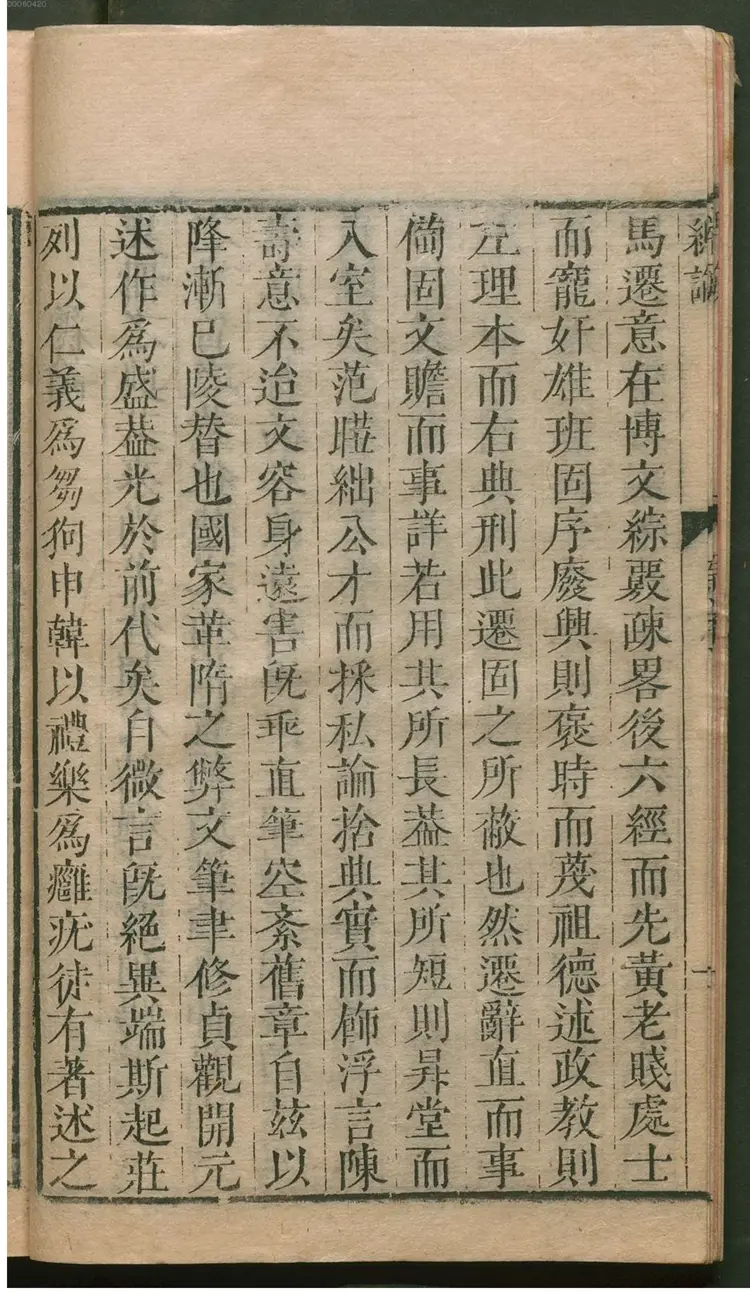 00060420
馬遷意在博文綜覈疎畧後六經而先黃老賤處士
而寵奸雄班固序廢興則褒時而蔑祖德述政教則
左理本而右典刑此遷固之所蔽也然遷辭直而事
備固文贍而事詳若用其所長葢其所短則昇堂而
入室矣范曄絀公才而採私論捨典實而飾浮言陳
壽意不迨文容身遠害旣乖直筆空紊舊章自茲以
降漸已陵替也國家革隋之弊文筆聿修貞觀開元
述作爲盛葢光於前代矣自微言旣絕異端斯起莊
列以仁義爲芻狗申韓以禮樂爲癰疣徒有著述之